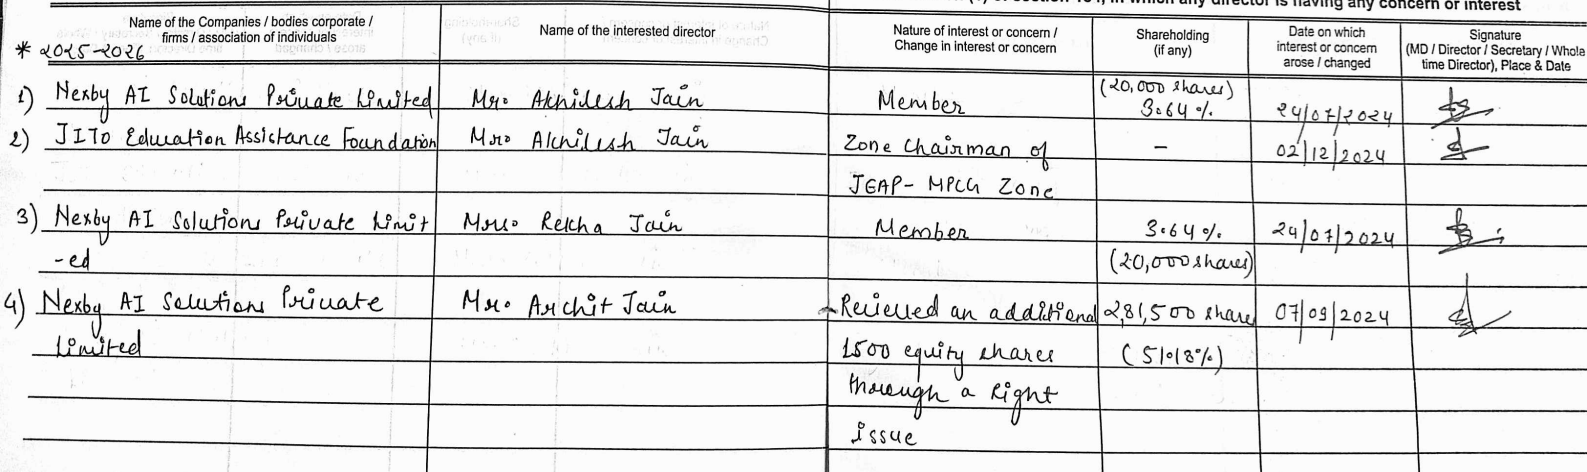 (1) of section 184, in which any director is having any concern or interest
Name of the Companies / bodies corporate / firms / association of individuals
Name of the interested director
Nature of interest or concern / Change in interest or concern
Shareholding (if any)
Date on which interest or concern arose / changed
Signature (MD / Director / Secretary / Whole time Director), Place & Date
* 2025-2026
1) Nexby AI Solutions Private Limited Mr. Akhilesh Jain Member (20,000 shares) 3.64% 24/07/2024
2) JITO Education Assistance Foundation Mr. Akhilesh Jain Zone Chairman of - 02/12/2024
JEAP- MPCG Zone
3) Nexby AI Solutions Private Limit Mrs. Rekha Jain Member 3.64% 24/07/2024
-ed (20,000 shares)
4) Nexby AI Solutions Private Mr. Archit Jain Recieved an additional 2,81,500 share 07/09/2024
Limited 1500 equity shares (51.18%)
through a Right
issue